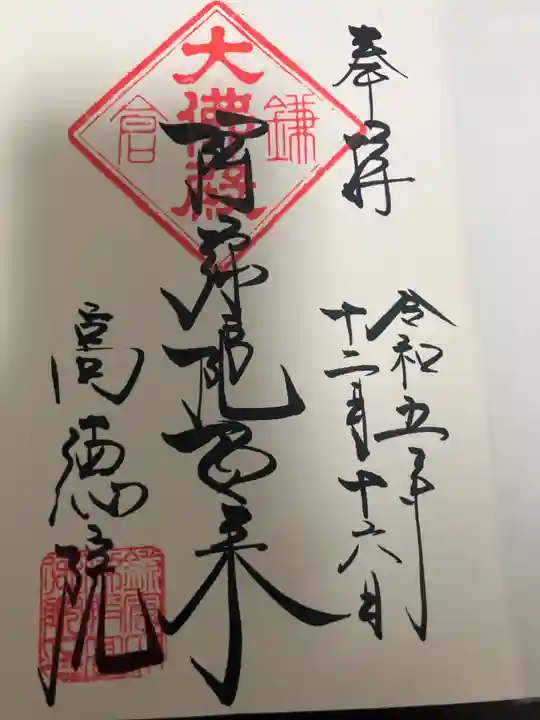 奉拝
令和五年
十二月十六日
阿弥陀如来
高徳院
大佛殿
鎌倉